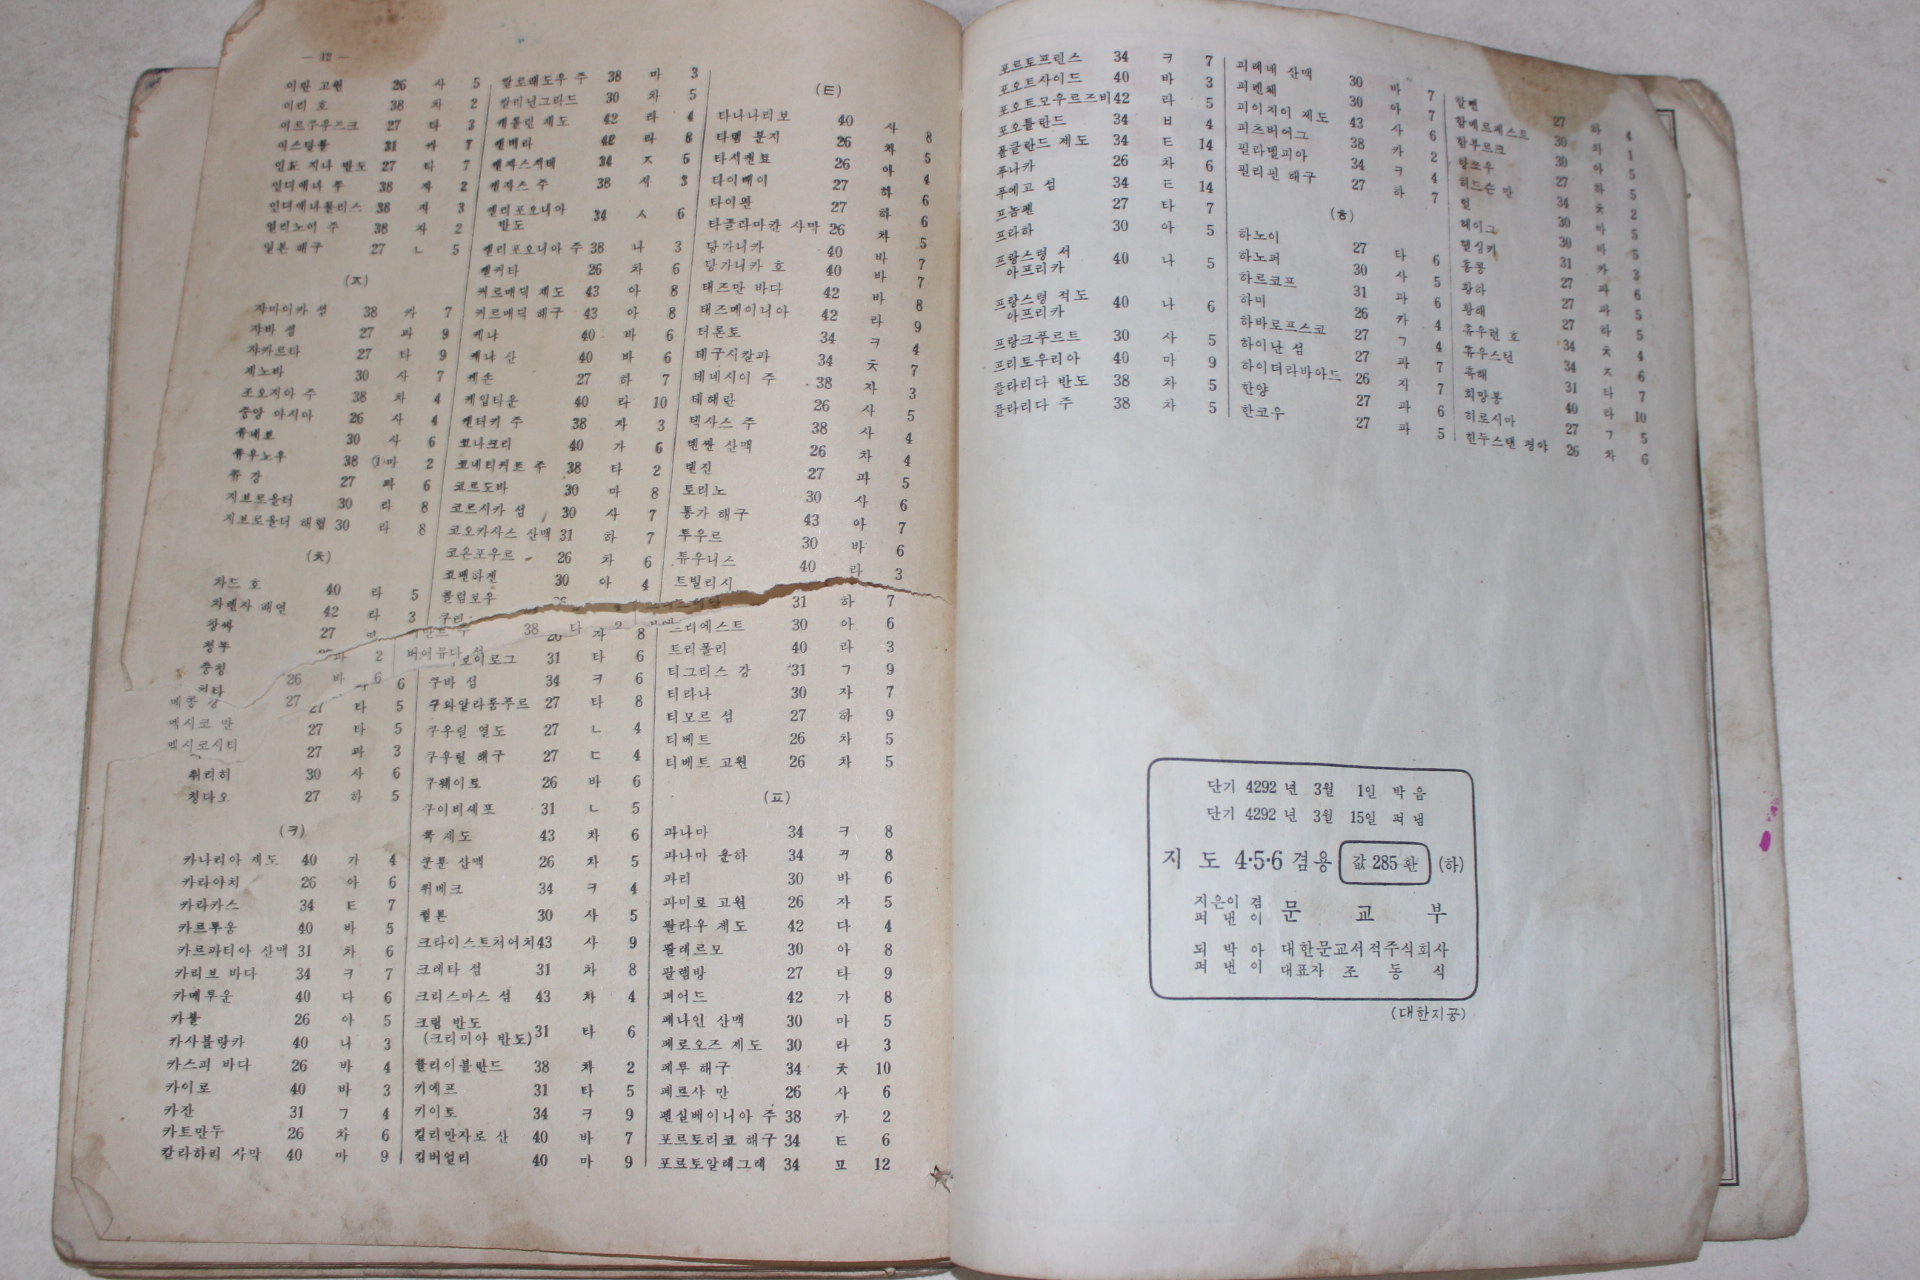 — 12 —
이란 고원 26 사 5
이리 호 38 차 2
이르쿠우즈크 27 타 3
이스탄불 31 카 7
인도 지나 반도 27 타 7
인디애나 주 38 자 2
인디애나폴리스 38 자 3
일리노이 주 38 자 2
일본 해구 27 ㄴ 5
(ㅈ)
자마이카 섬 38 카 7
자바 섬 27 파 9
자카르타 27 타 9
제노바 30 사 7
조오지아 주 38 차 4
중앙 아시아 26 사 4
쥬네브 30 사 6
쥬우노우 38 마 2
쥬 강 27 파 6
지브로올터 30 라 8
지브로올터 해협 30 라 8
(ㅊ)
차드 호 40 타 5
차렌자 해연 42 타 3
창싸 27
청뚜
충칭
치타
메콩 강 27
멕시코 만
멕시코시티
27 타 5
27 타 5
27 파 3
취리히 30 사 6
칭다오 27 하 5
(ㅋ)
카나리아 제도 40 가 4
카라아치 26 아 6
카라카스 34 ㅌ 7
카르투움 40 바 5
카르파티아 산맥 31 차 6
카리브 바다 34 ㅋ 7
카메루운 40 다 6
카불 26 아 5
카사블랑카 40 나 3
카스피 바다 26 바 4
카이로 40 바 3
카잔 31 ㄱ 4
카트만두 26 차 6
칼라하리 사막 40 마 9
칼로래도우 주 38 마 3
칼리닌그라드 30 차 5
캐롤린 제도 42 라 4
캔버라 42 라 8
캔자스시티 34 ㅈ 5
캔자스 주 38 서 3
캘리포오니아 반도 34 ㅅ 6
캘리포오니아 주 38 나 3
캘커타 26 차 6
커르매덕 제도 43 아 8
커르매덕 해구 43 아 8
케냐 40 바 6
케냐 산 40 바 6
케손 27 하 7
케입타운 40 라 10
켄터키 주 38 자 3
코나크리 40 가 6
코네티커트 주 38 타 2
코르도바 30 마 8
코르시카 섬 30 사 7
코오카사스 산맥 31 하 7
코온포우르 26 차 6
코펜하겐 30 아 4
콜럼보우
쿠리
38 타 2
버어뮤다 섬
보이로그 31 타 6
쿠바 섬 34 ㅋ 6
쿠와알라룸푸르 27 타 8
쿠우릴 열도 27 ㄴ 4
쿠우릴 해구 27 ㄷ 4
쿠웨이트 26 바 6
쿠이비셰프 31 ㄴ 5
쿡 제도 43 차 6
쿤룬 산맥 26 차 5
퀴베크 34 ㅋ 4
쾰른 30 사 5
크라이스트처어치 43 사 9
크레타 섬 31 차 8
크리스마스 섬 43 차 4
크림 반도
(크리미아 반도) 31 타 6
클리이블란드 38 차 2
키에프 31 타 5
키이토 34 ㅋ 9
킬리만자로 산 40 바 7
킴버얼리 40 마 9
(ㅌ)
타나나리보 40 사 8
타림 분지 26 차 5
타시켄트 26 아 4
타이베이 27 하 6
타이완 27 하 6
타클라마칸 사막 26 차 5
탕가니카 40 바 7
탕가니카 호 40 바 7
태즈만 바다 42 바 8
태즈메이니아 42 라 9
터론토 34 ㅋ 4
테구시칼파 34 ㅊ 7
테네시이 주 38 자 3
테헤란 26 사 5
텍사스 주 38 사 4
톈싼 산맥 26 차 4
톈진 27 파 5
토리노 30 사 6
통가 해구 43 아 7
투우르 30 바 6
튜우니스 40 라 3
트빌리시 31 하 7
트리에스트 30 아 6
트리폴리 40 라 3
티그리스 강 31 ㄱ 9
티라나 30 자 7
티모르 섬 27 하 9
티베트 26 차 5
티베트 고원 26 차 5
(ㅍ)
파나마 34 ㅋ 8
파나마 운하 34 ㅋ 8
파리 30 바 6
파미르 고원 26 자 5
팔라우 제도 42 다 4
팔레르모 30 아 8
팔렘방 27 타 9
퍼어드 42 가 8
페나인 산맥 30 마 5
페로오즈 제도 30 라 3
페루 해구 34 ㅊ 10
페르샤 만 26 사 6
펜실베이니아 주 38 카 2
포르토리코 해구 34 ㅌ 6
포르토알레그레 34 ㅍ 12
포르토프린스 34 ㅋ 7
포오트사이드 40 바 3
포오트모우르즈비 42 라 5
포오틀란드 34 ㅂ 4
폴클란드 제도 34 ㅌ 14
푸나카 26 차 6
푸에고 섬 34 ㅌ 14
프놈펜 27 타 7
프라하 30 아 5
프랑스령 서 아프리카 40 나 5
프랑스령 적도 아프리카 40 나 6
프랑크푸르트 30 사 5
프리토우리아 40 마 9
플라리다 반도 38 차 5
플라리다 주 38 차 5
피레네 산맥 30 바 7
피렌체 30 아 7
피이지이 제도 43 사 6
피츠버어그 38 카 2
필라델피아 34 ㅋ 4
필리핀 해구 27 하 7
(ㅎ)
하노이 27 타 6
하노퍼 30 사 5
하르코프 31 파 6
하미 26 카 4
하바로프스코 27 ㄱ 4
하이난 섬 27 파 7
하이더라바아드 26 지 7
한양 27 파 6
한코우 27 파 5
할삔 27 하 4
함메르페스트 30 차 1
함부르크 30 아 5
항쪼우 27 하 5
허드슨 만 34 ㅊ 2
헐 30 바 5
헤이그 30 바 5
헬싱키 31 카 3
홍콩 27 파 6
황하 27 파 5
황해 27 하 5
휴우런 호 34 ㅊ 4
휴우스턴 34 ㅈ 6
흑해 31 타 7
희망봉 40 타 10
히로시마 27 ㄱ 5
힌두스탄 평야 26 차 6
단기 4292 년 3월 1일 박음
단기 4292 년 3월 15일 펴냄
지 도 4·5·6 겸용 값 285 환 (하)
지은이 겸
펴 낸 이 문 교 부
되 박 아
펴 낸 이 대한문교서적주식회사
대표자 조 동 식
(대한지공)